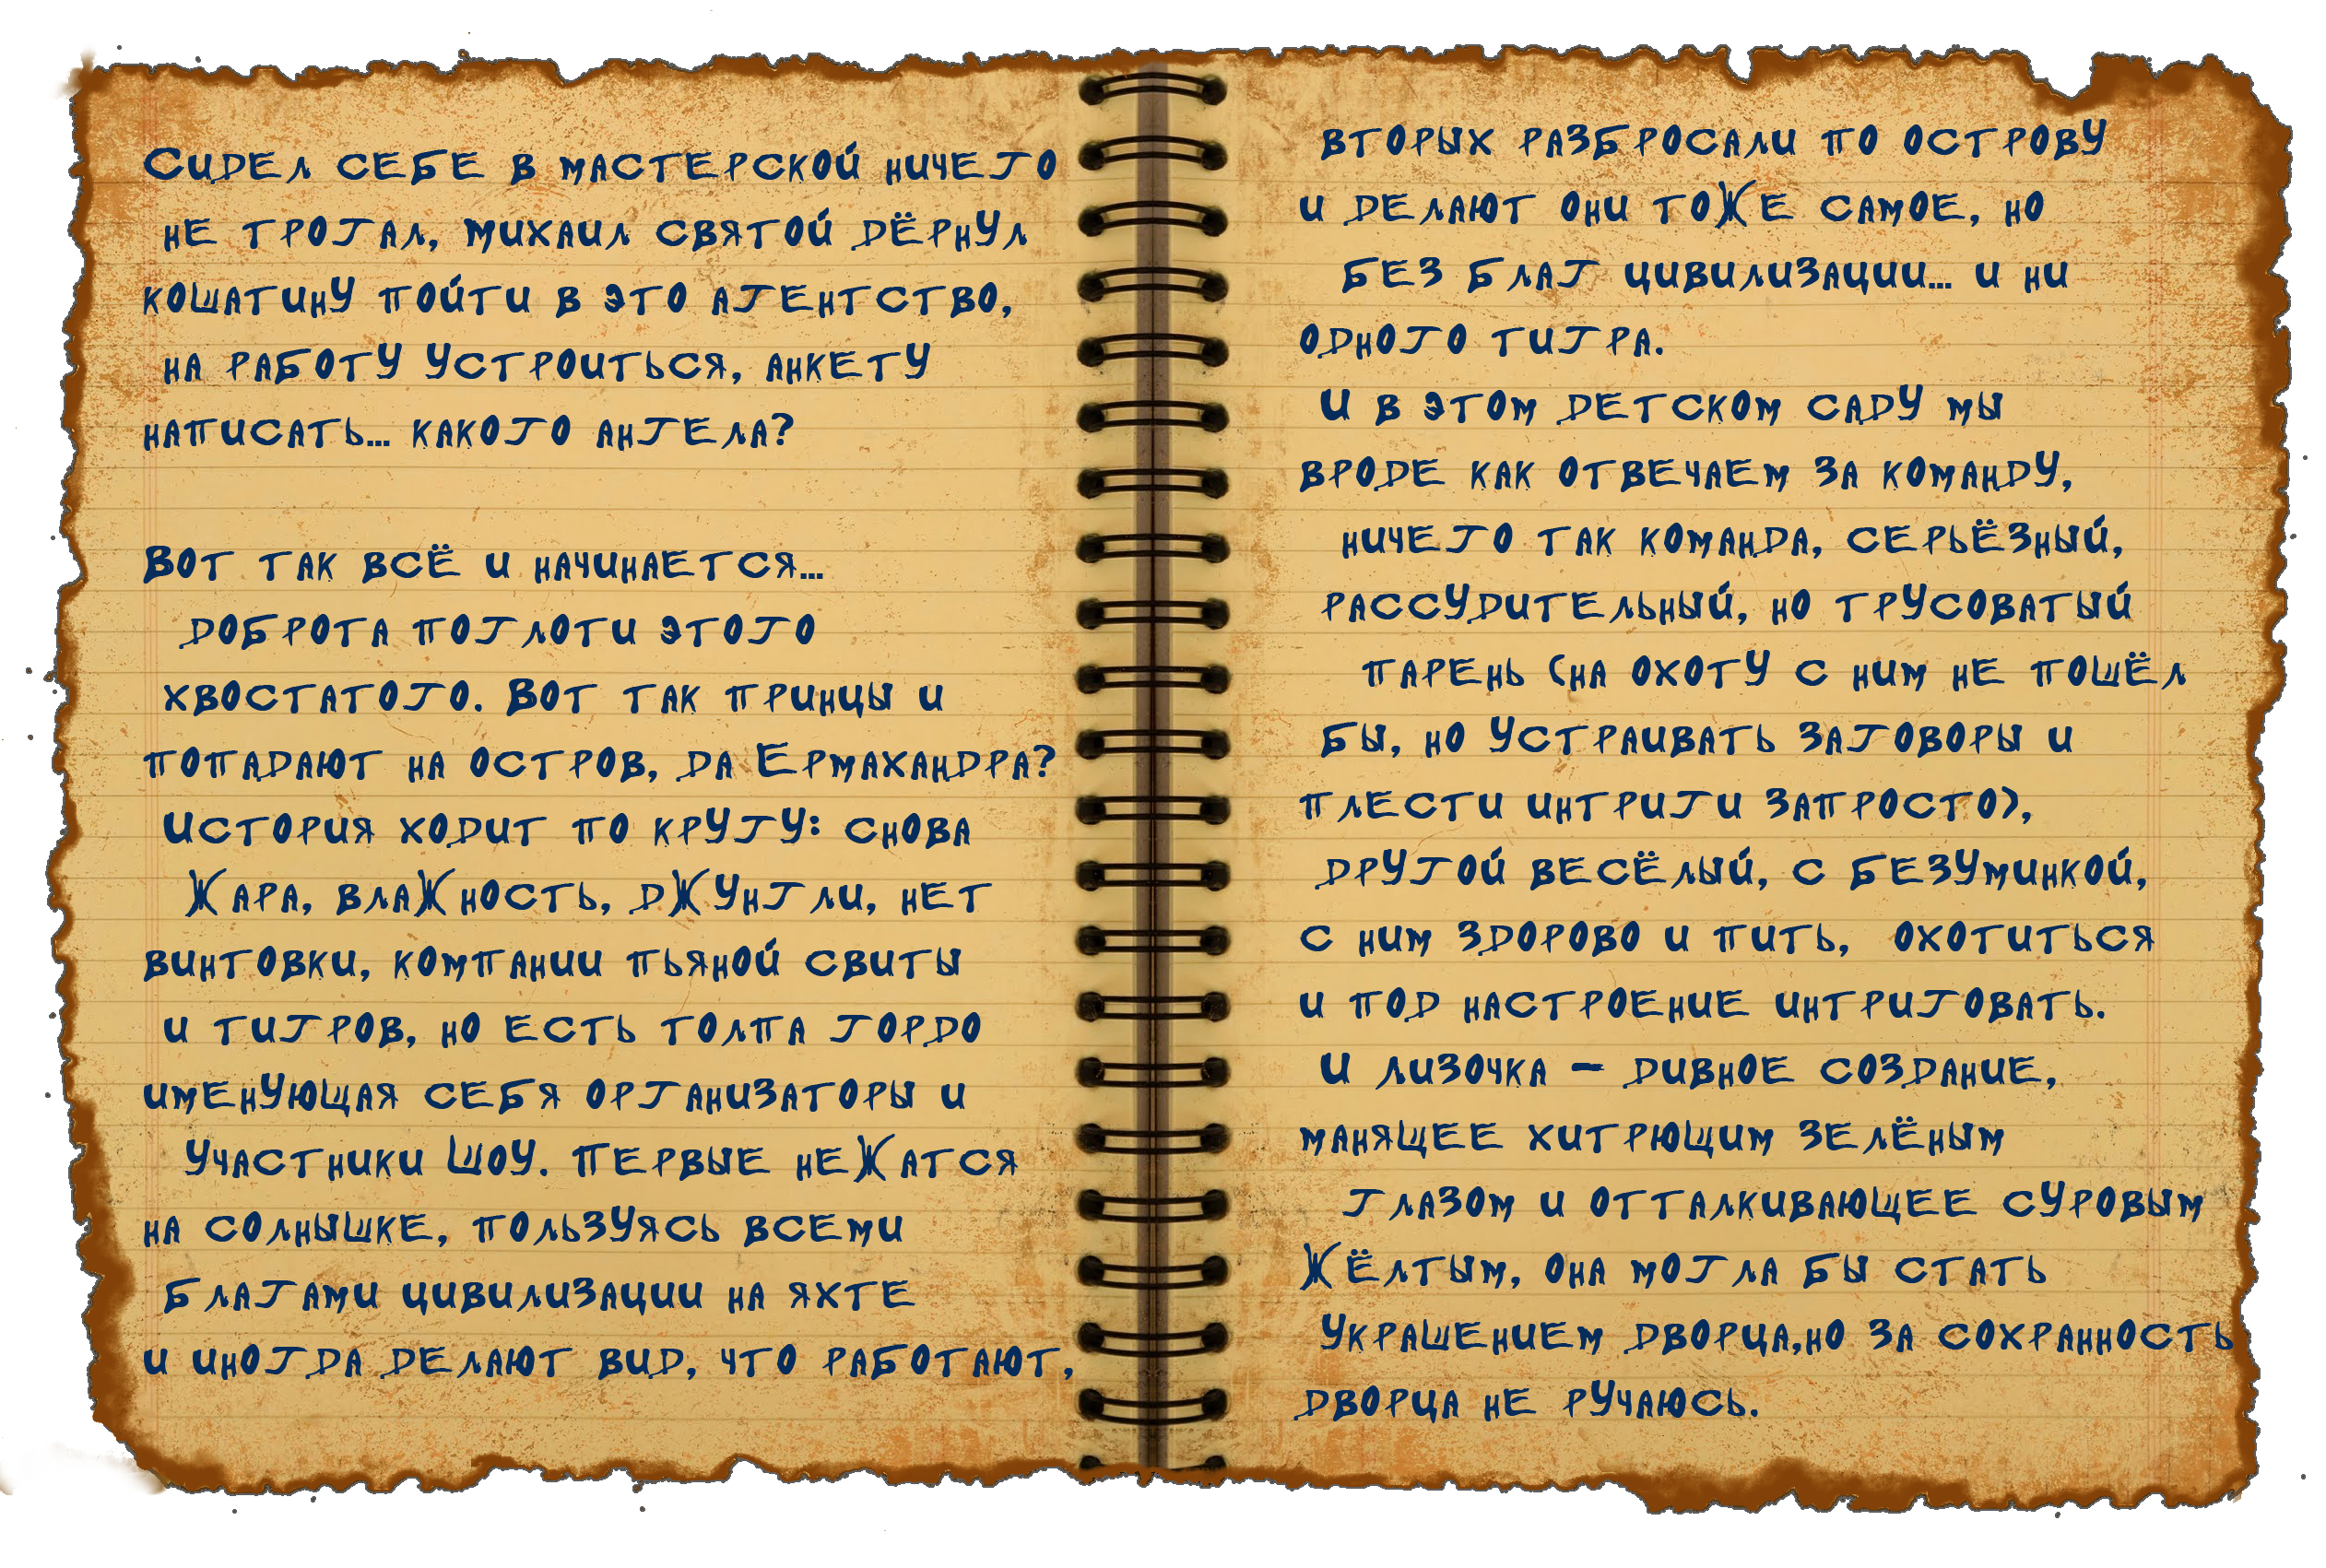 Сидел себе в мастерской ничего
не трогал, Михаил святой дёрнул
кошатину пойти в это агентство,
на работу устроиться, анкету
написать... какого ангела?
Вот так всё и начинается...
доброта поглоти этого
хвостатого. Вот так принцы и
попадают на остров, да Ермахандра?
История ходит по кругу: снова
жара, влажность, джунгли, нет
винтовки, компании пьяной свиты
и тигров, но есть толпа гордо
именующая себя организаторы и
участники шоу. Первые нежатся
на солнышке, пользуясь всеми
благами цивилизации на яхте
и иногда делают вид, что работают,
вторых разбросали по острову
и делают они тоже самое, но
без благ цивилизации... и ни
одного тигра.
И в этом детском саду мы
вроде как отвечаем за команду,
ничего так команда, серьёзный,
рассудительный, но трусоватый
парень (на охоту с ним не пошёл
бы, но устраивать заговоры и
плести интриги запросто),
другой весёлый, с безуминкой,
с ним здорово и пить, охотиться
и под настроение интриговать.
И Лизочка – дивное создание,
манящее хитрющим зелёным
глазом и отталкивающее суровым
жёлтым, она могла бы стать
украшением дворца,но за сохранность
дворца не ручаюсь.